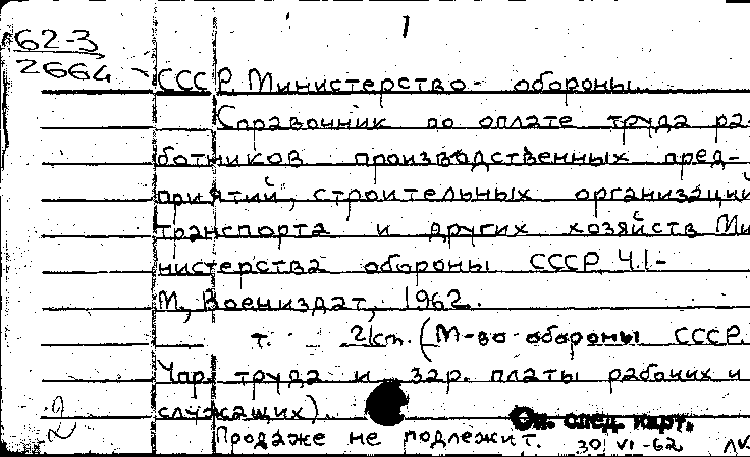 1
62-3
2664
СССР. Министерство обороны.
Справочник по оплате труда ра-
ботников производственных пред-
приятий, строительных организаций
транспорта и других хозяйств Ми-
нистерства обороны СССР Ч.1-
М., Воениздат, 1962.
т. 21 см. (М-во обороны СССР.
Упр. труда и зар. платы рабочих и
служащих).
2
См. след. карт.
Продаже не подлежит. 30/VI-62